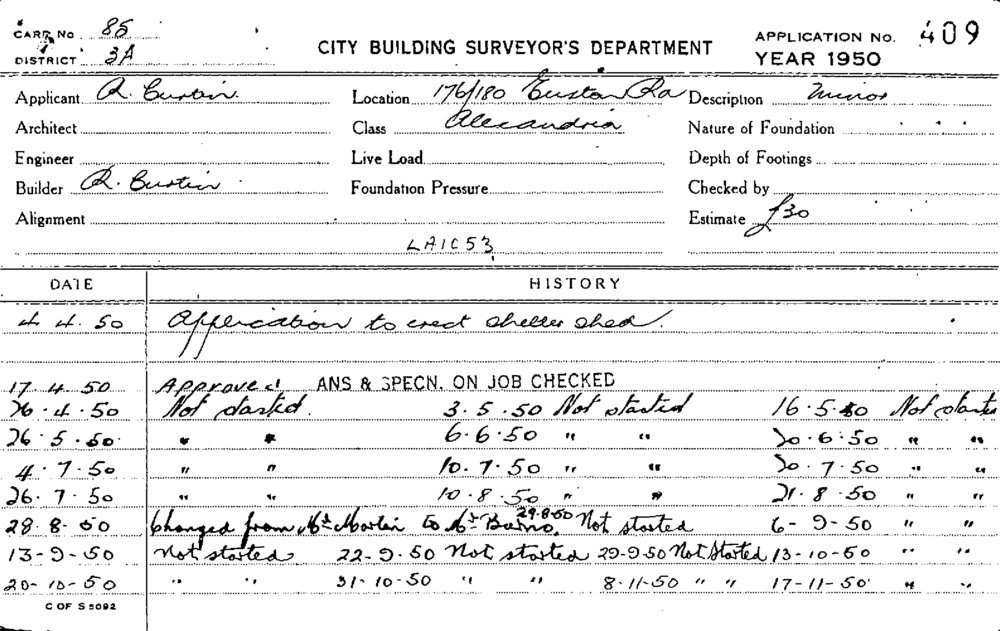 CARD No 85
DISTRICT 3A
CITY BUILDING SURVEYOR'S DEPARTMENT
APPLICATION No. 409
YEAR 1950
Applicant R. Curtin. Location 176/180 Euston Rd Description Minor
Architect Class Alexandria Nature of Foundation
Engineer Live Load Depth of Footings
Builder R. Curtin. Foundation Pressure Checked by
Alignment Estimate £30
LA1C53
DATE HISTORY
4 4. 50 Application to erect shelter shed.
17. 4. 50 Approved ANS & SPECN. ON JOB CHECKED
26. 4. 50 Not started. 3. 5. 50 Not started 16. 5. 50 Not started
26. 5. 50. " " 6. 6. 50 " " 20. 6. 50 " "
4. 7. 50 " " 10. 7. 50 " " 20. 7. 50 " "
26. 7. 50 " " 10. 8. 50 " " 21. 8. 50 " "
28. 8. 50 Changed from Mr Martin to Mr Burns. 29.8.50 Not started 6-9-50 " "
13-9-50 Not started 22-9.50 Not started 29-9.50 Not Started 13-10-50 " "
20-10-50 " " 31-10-50 " " 8-11-50 " " 17-11-50 " "
C OF S 5092